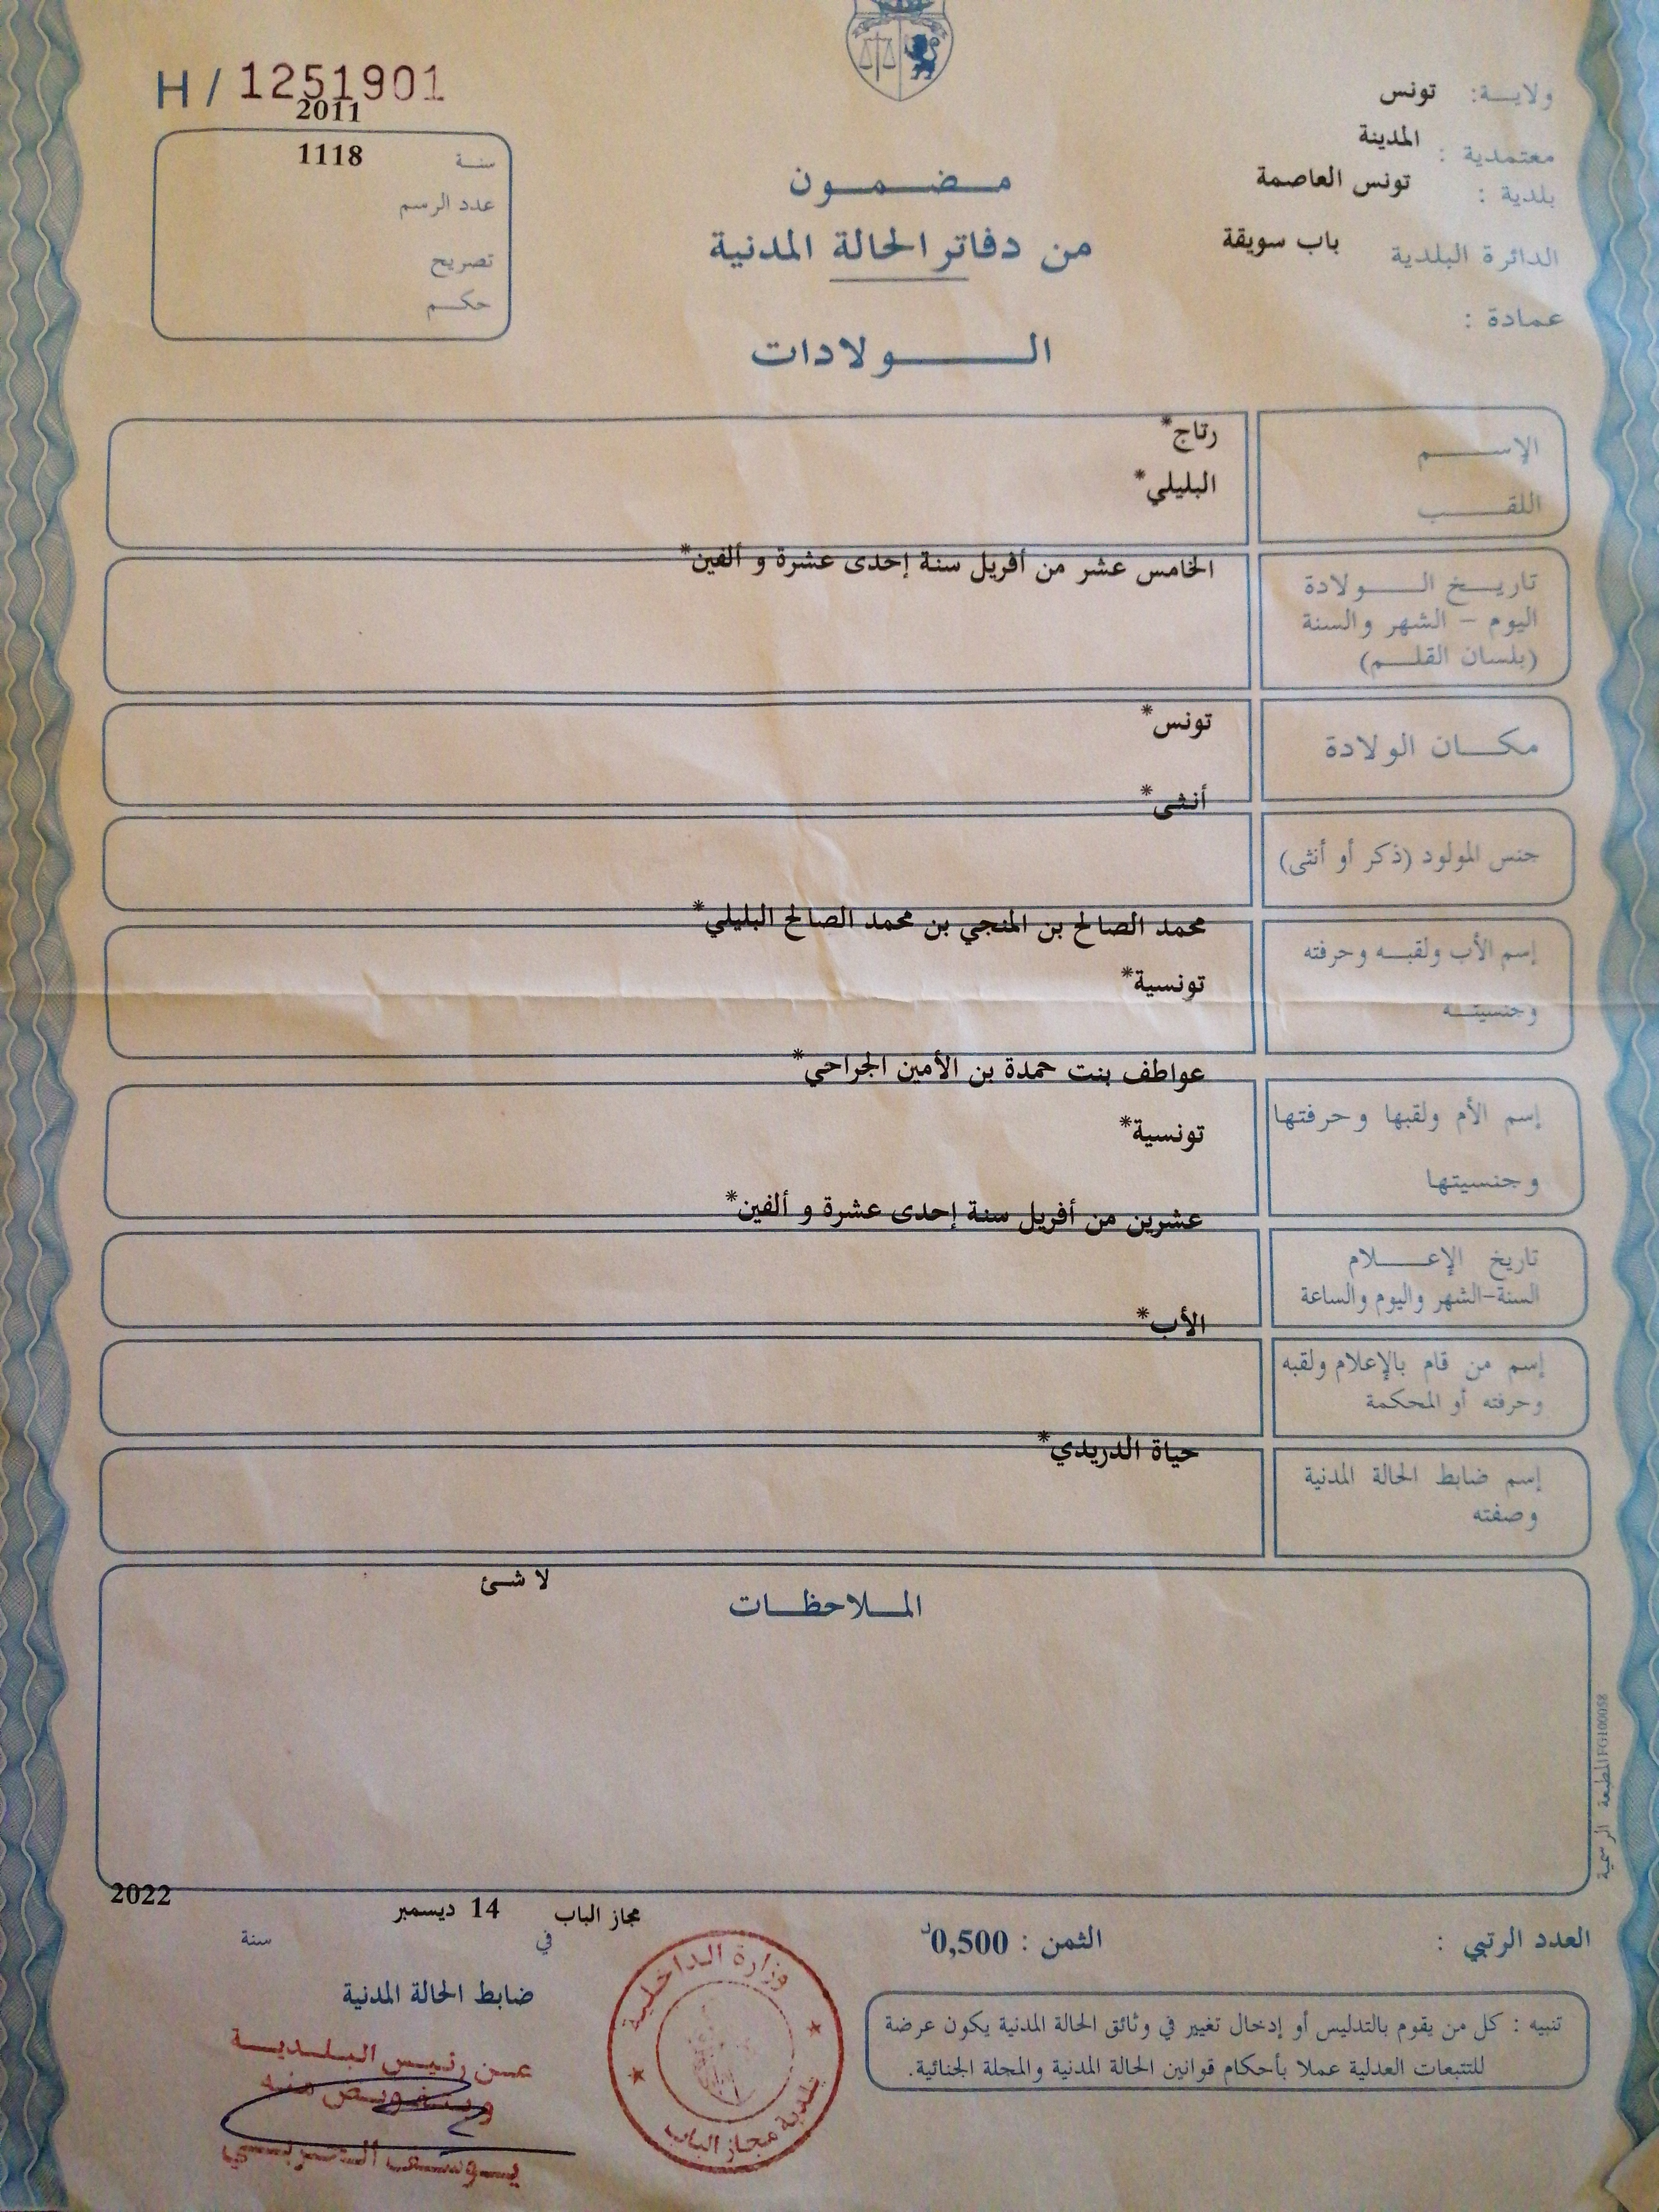 H / 1251901
2011
سنة 1118
عدد الرسم
تصريح
حكم
ولاية: تونس
معتمدية : المدينة
بلدية : تونس العاصمة
الدائرة البلدية باب سويقة
عمادة :
مضمون
من دفاتر الحالة المدنية
الولادات
الإسم رتاج*
اللقب البليلي*
تاريخ الولادة الخامس عشر من أفريل سنة إحدى عشرة و ألفين*
اليوم - الشهر والسنة
(بلسان القلم)
مكان الولادة تونس*
جنس المولود (ذكر أو أنثى) أنثى*
إسم الأب ولقبه وحرفته محمد الصالح بن المنجي بن محمد الصالح البليلي*
وجنسيته تونسية*
إسم الأم ولقبها وحرفتها عواطف بنت حمدة بن الأمين الجراحي*
وجنسيتها تونسية*
تاريخ الإعلام عشرين من أفريل سنة إحدى عشرة و ألفين*
السنة-الشهر واليوم والساعة
إسم من قام بالإعلام ولقبه الأب*
وحرفته أو المحكمة
إسم ضابط الحالة المدنية حياة الدريدي*
وصفته
الملاحظات لا شئ
المطبعة الرسمية FG100058
العدد الرتبي :
الثمن : 0,500د
مجاز الباب في 14 ديسمبر سنة 2022
ضابط الحالة المدنية
عن رئيس البلدية
وبتفويض منه
يوسف
وزارة الداخلية
بلدية مجاز الباب
تنبيه : كل من يقوم بالتدليس أو إدخال تغيير في وثائق الحالة المدنية يكون عرضة
للتتبعات العدلية عملا بأحكام قوانين الحالة المدنية والمجلة الجنائية.